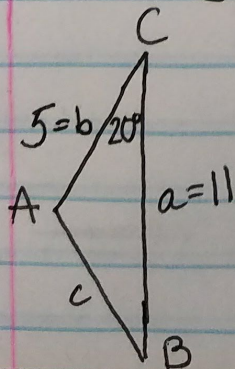 C
5=b 20°
A a=11
c
B